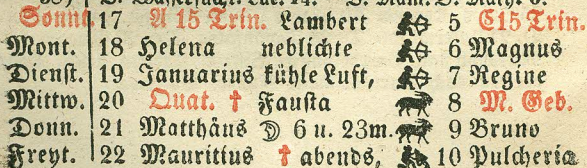 Sonnt. 17 A 15 Trin. Lambert 5 E15 Trin.
Mont. 18 Helena neblichte 6 Magnus
Dienst. 19 Januarius kühle Luft, 7 Regine
Mittw. 20 Quat. † Fausta 8 M. Geb.
Donn. 21 Matthäus ☽ 6 u. 23m. 9 Bruno
Freyt. 22 Mauritius † abends, 10 Pulcheria